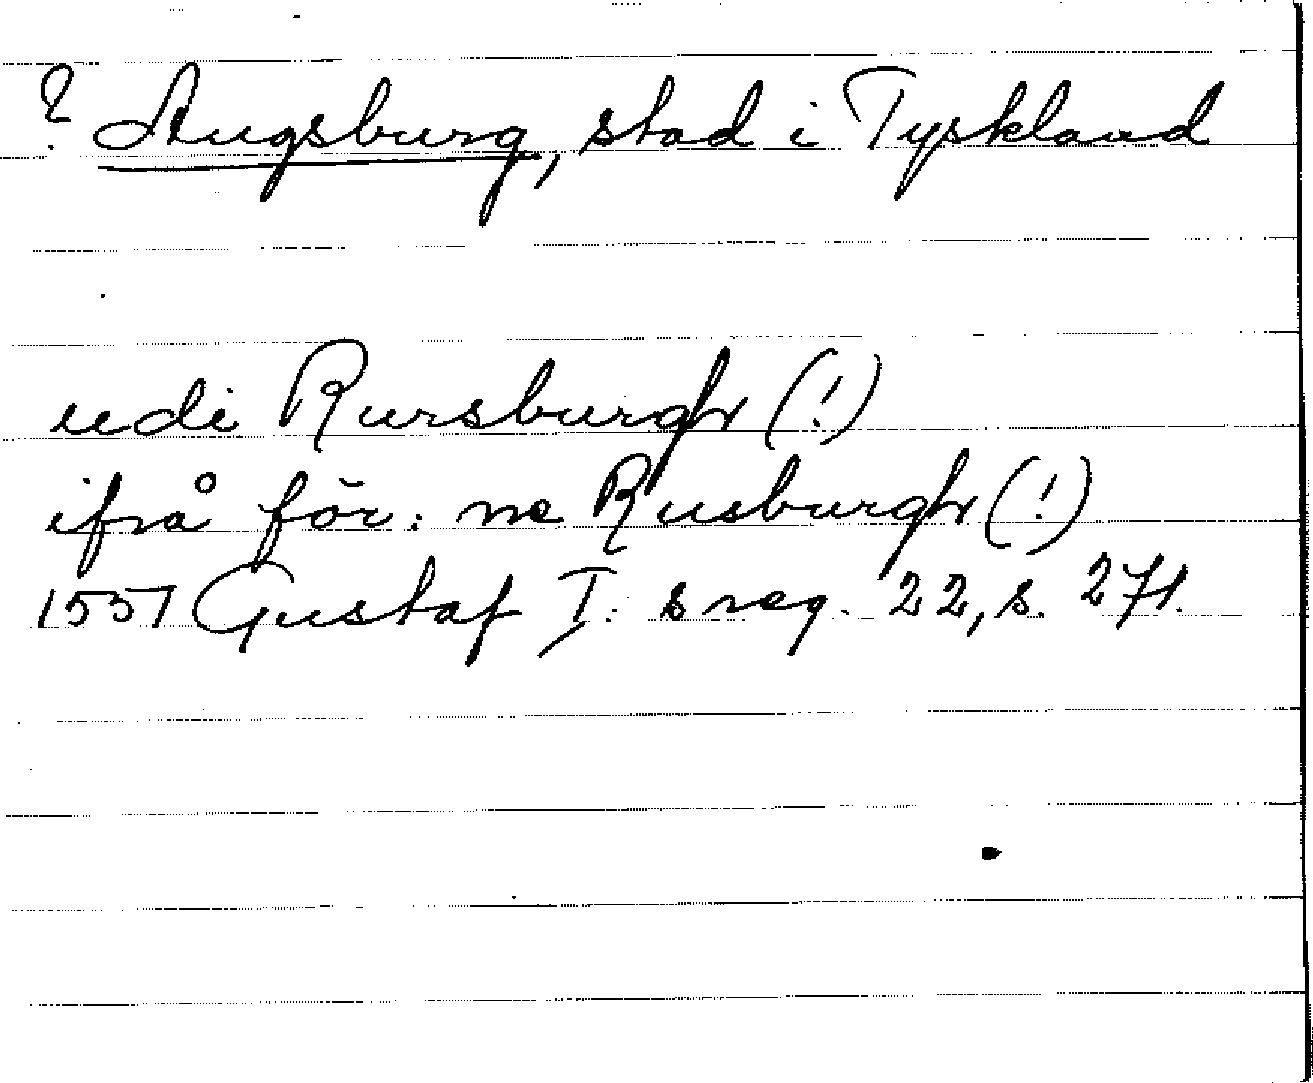 ? Augsburg, stad i Tyskland
udi Rursburgh (!)
ifrå för: ne Rusburgh (!)
1551 Gustaf I: s reg. 22, s. 271.